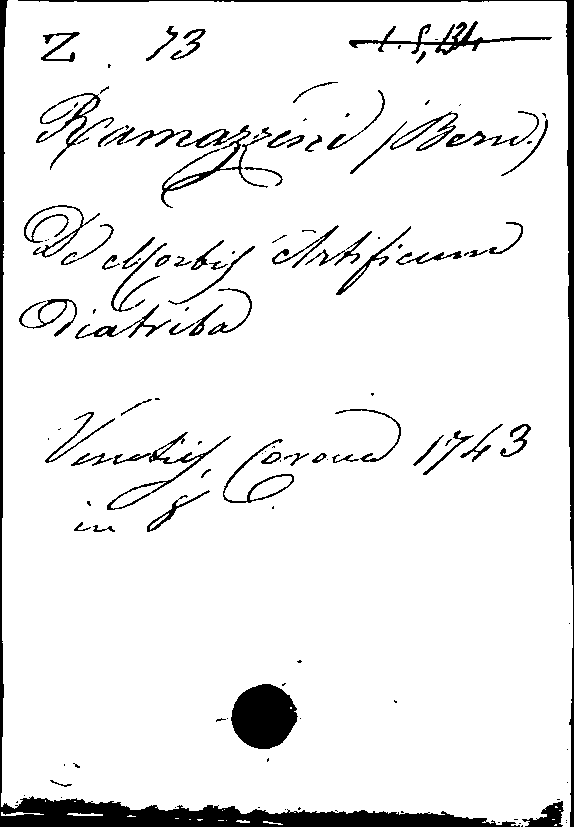 Z. 73
Ramazzini (Bern.)
De Morbis Artificum
Diatriba
Venetiis, Corona 1743
in 8